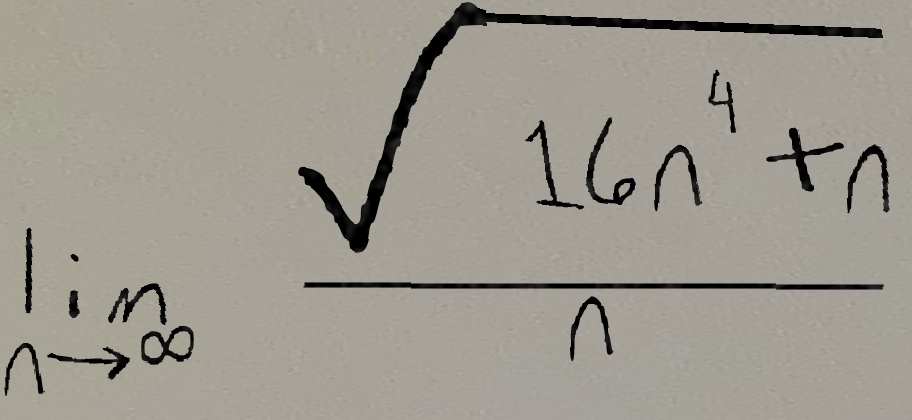 lim n→∞ √(16n⁴ + n) / n